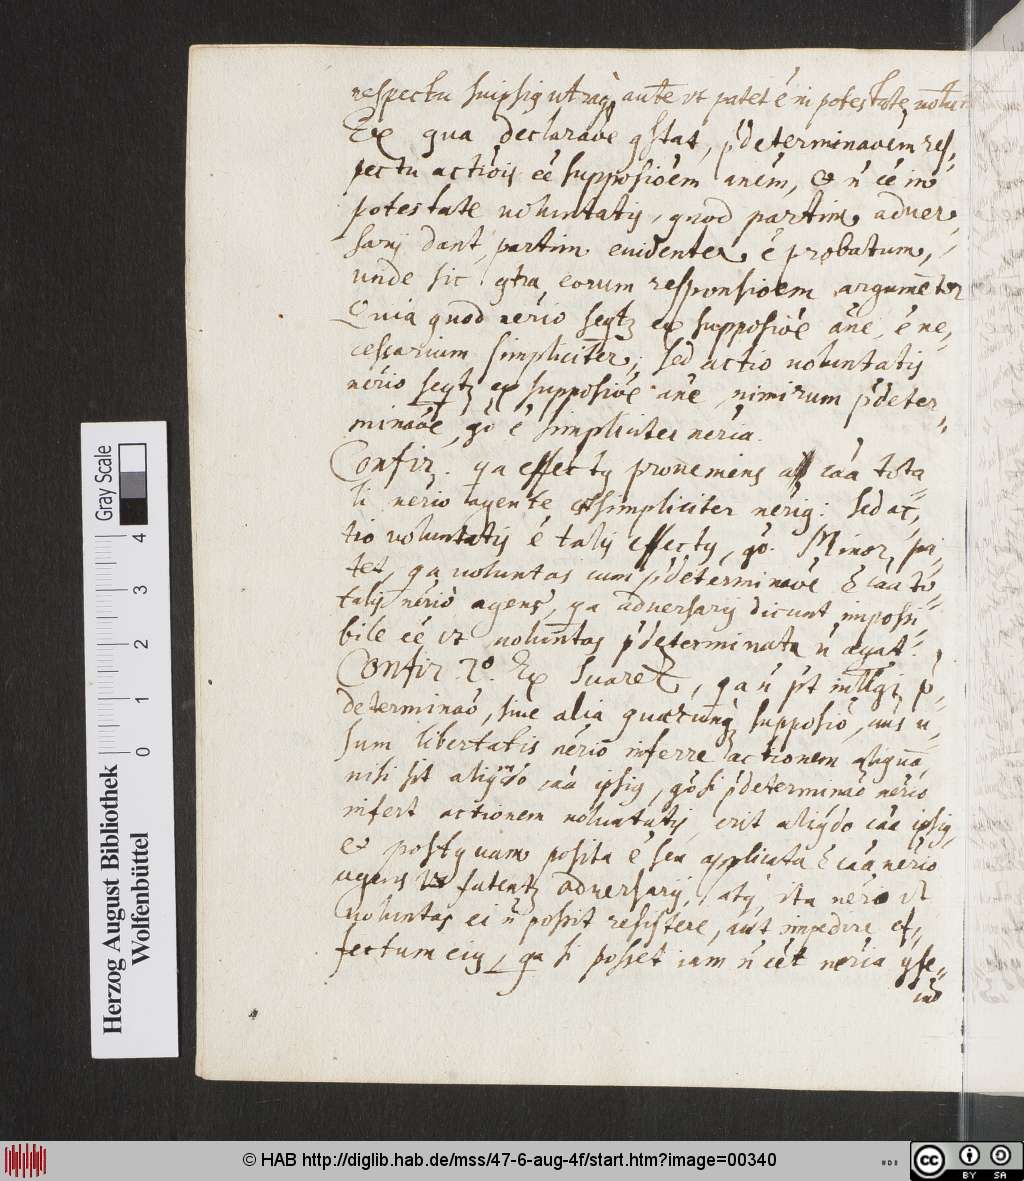 respectu suipsig utraq, aute ut patet é in potestate volut
Ex qua declaraoe gstat, p'determinaoem res,
pectu actiois eé supposioem anem, & n eé in
potestate voluntatis, quod partim adver,
sarij dant, partim evidenter é probatum,
unde sic gtra eorum responsioem argumetor
Quia quod nerio seqtz ex supposioe ane, é ne,
cessarium simpliciter; sed actio voluntatis
nerio seqtz ex supposioe ane nimirum p'deter,
minaoe, go é simpliciter neria.
Confir. qa effectg proveniens a caa tota
li nerio agente é simpliciter nerig: sed ac,
tio voluntatis é talis effectg, go. Minor pa
tet, qa voluntas cum p'determinaoe é caa to
talis nerio agens, qa adversarij dicunt impossi
bile eé ut voluntas p'determinata n agat.
Confir. 2o. Ex Suarez, qa n pt intlligi p'
determinao, sive alia quaecunq supposio, aus u,
sum libertatis nerio inferre actionem aliqua
nisi sit aliqmo caa ipsig, go si p'determinao nerio
infert actionem voluntatis, erit aliqdo caa ipsig,
et postquam posita é seu applicata é caa nerio
agens ut fatentz adversarij, atq, ita nerio ut
voluntas ei n possit resistere, aut impedire ef,
fectum eig, qa si posset iam n eét neria gse,
cuo
Herzog August Bibliothek
Wolfenbüttel
Gray Scale
0 1 2 3 4
© HAB http://diglib.hab.de/mss/47-6-aug-4f/start.htm?image=00340
cc BY SA